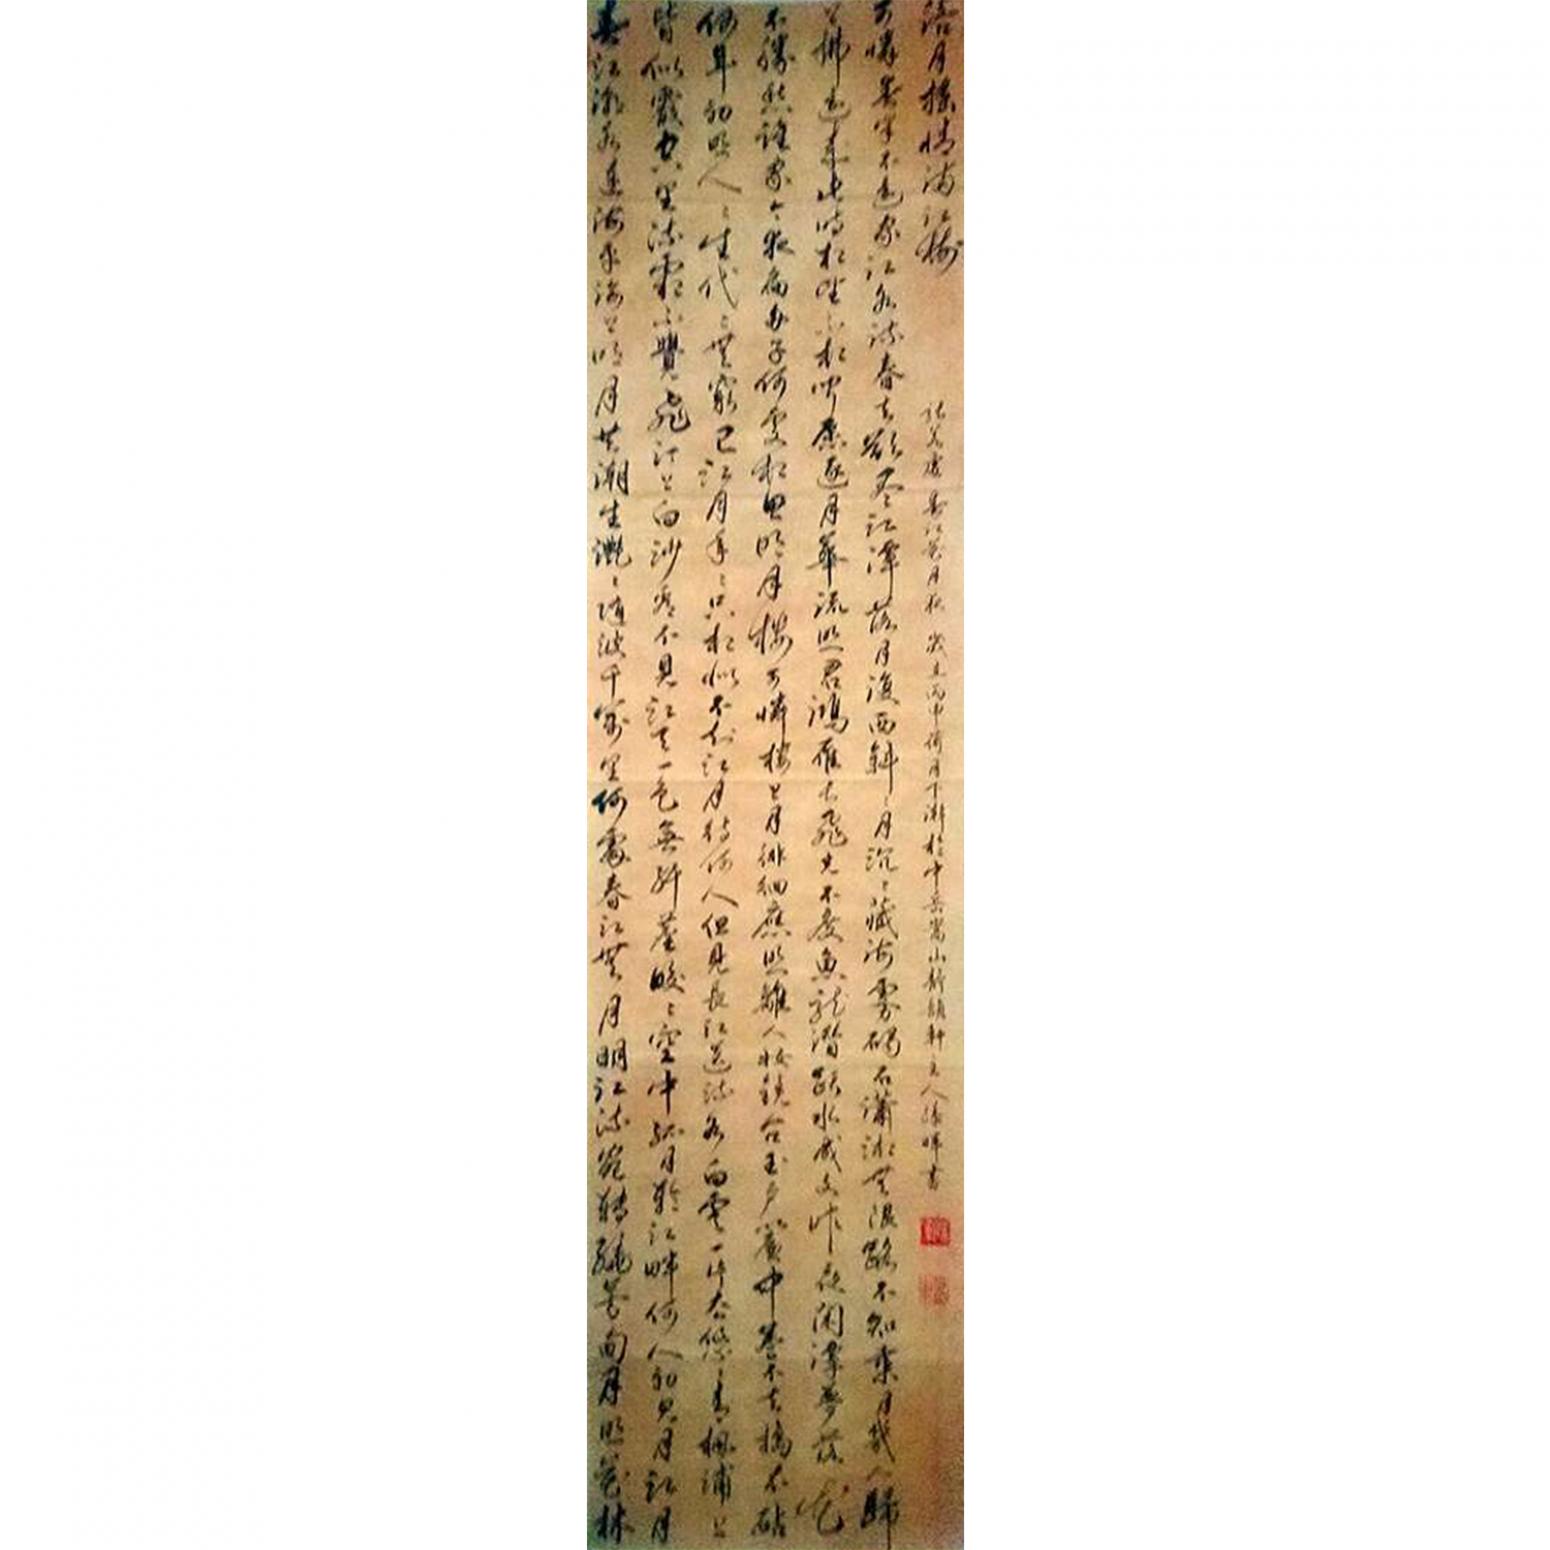 春江潮水連海平海上明月共潮生灩々隨波千萬里何處春江無月明江流宛轉繞芳甸月照花林
皆似霰空里流霜不覺飛汀上白沙看不見江天一色無纖塵皎々空中孤月輪江畔何人初見月江月
何年初照人々生代々無窮已江月年々只相似不知江月待何人但見長江送流水白雲一片去悠々青楓浦上
不勝愁誰家今夜扁舟子何處相思明月樓可憐樓上月徘徊應照離人妝鏡台玉戶簾中卷不去擣衣砧
上拂還來此時相望不相聞願逐月華流照君鴻雁長飛光不度魚龍潛躍水成文昨夜閑潭夢落花
可憐春半不還家江水流春去欲盡江潭落月復西斜々月沉々藏海霧碣石瀟湘無限路不知乘月幾人歸
落月搖情滿江樹
張若虛春江花月夜 歲在丙申荷月下澣於中岳嵩山靜頤軒主人書